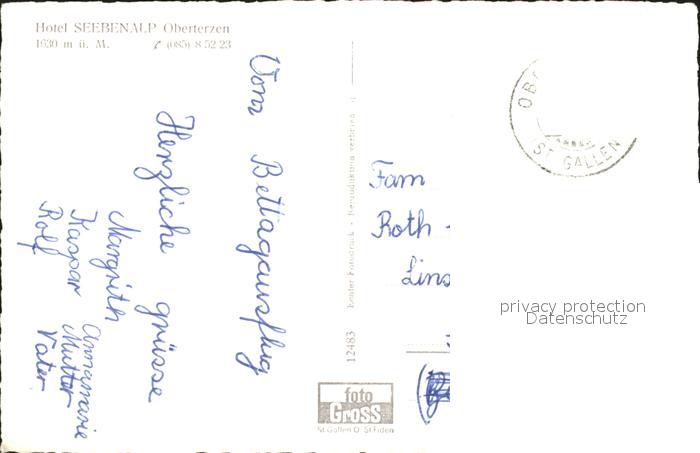 Hotel SEEBENALP Oberterzen
1630 m ü. M. ✆ (085) 8 52 23
Vom Bettagausflug
Herzliche grüsse
Margrith Annamarie
Kaspar Mutter
Rolf Vater
12483 Echter Fotodruck - Reproduktion verboten
foto
GROSS
St. Gallen O. St. Fiden
Fam
Roth -
Lins
OB
ST. GALLEN
privacy protection
Datenschutz